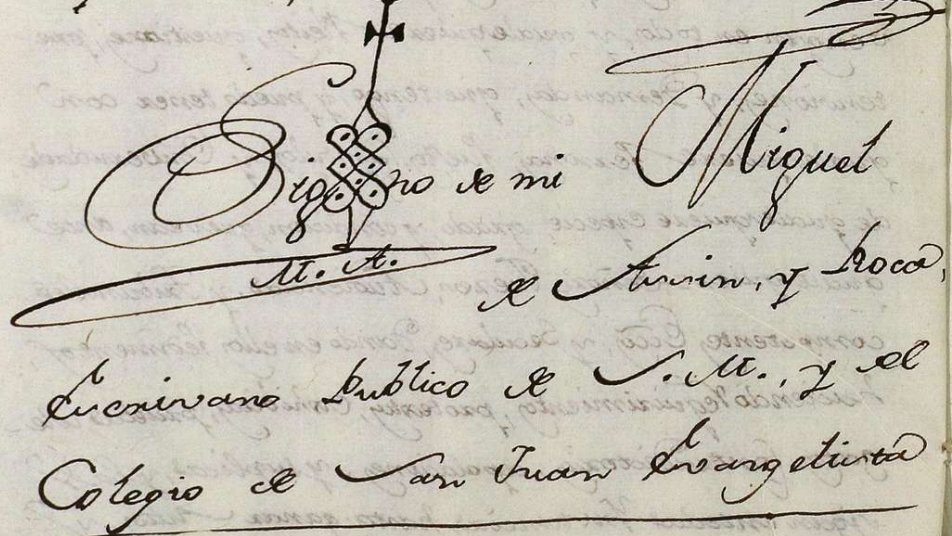 Signo de mi Miguel
M. A.
de Asin, y Roca
Escrivano Publico de S. M., y del
Colegio de San Juan Evangelista